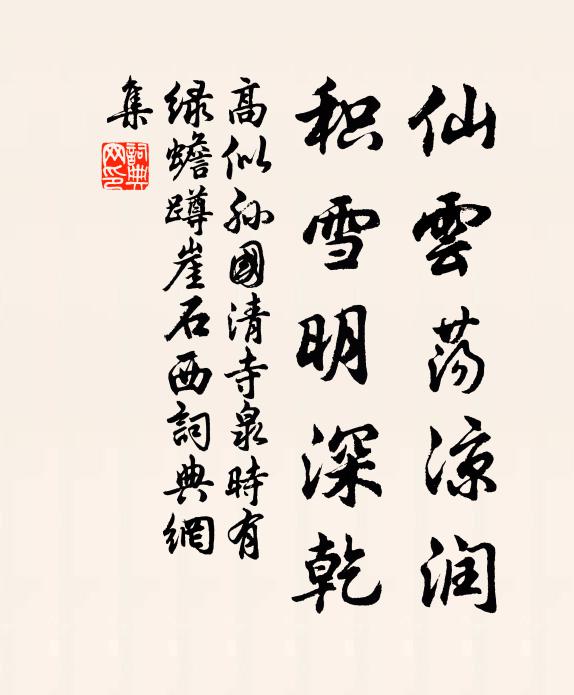 仙雲蕩凉润
积雪明深乾
高似孙國清寺泉時有
绿蟾蹲崖石西詞典網
集
詞典
网印